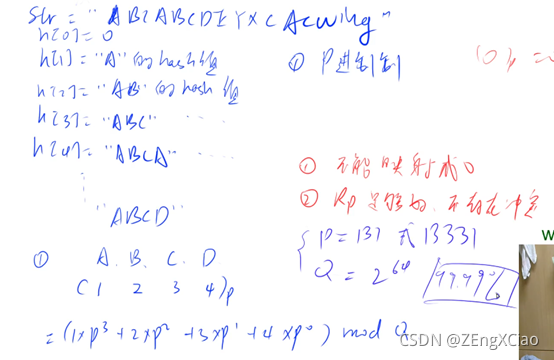 Str = "ABCABCDEYXCAcwing"
h[0] = 0
h[1] = "A" 的 hash 值
h[2] = "AB" 的 hash 值
h[3] = "ABC" ....
h[4] = "ABCA" ....
"ABCD"
① P进制
① A. B. C. D
( 1 2 3 4 )p
= (1×p³ + 2×p² + 3×p¹ + 4×p⁰) mod Q
① 不能映射成 0
② Rp 足够好, 不存在冲突
P = 131 或 13331
Q = 2^64
99.99%
CSDN @ZEngXCiao